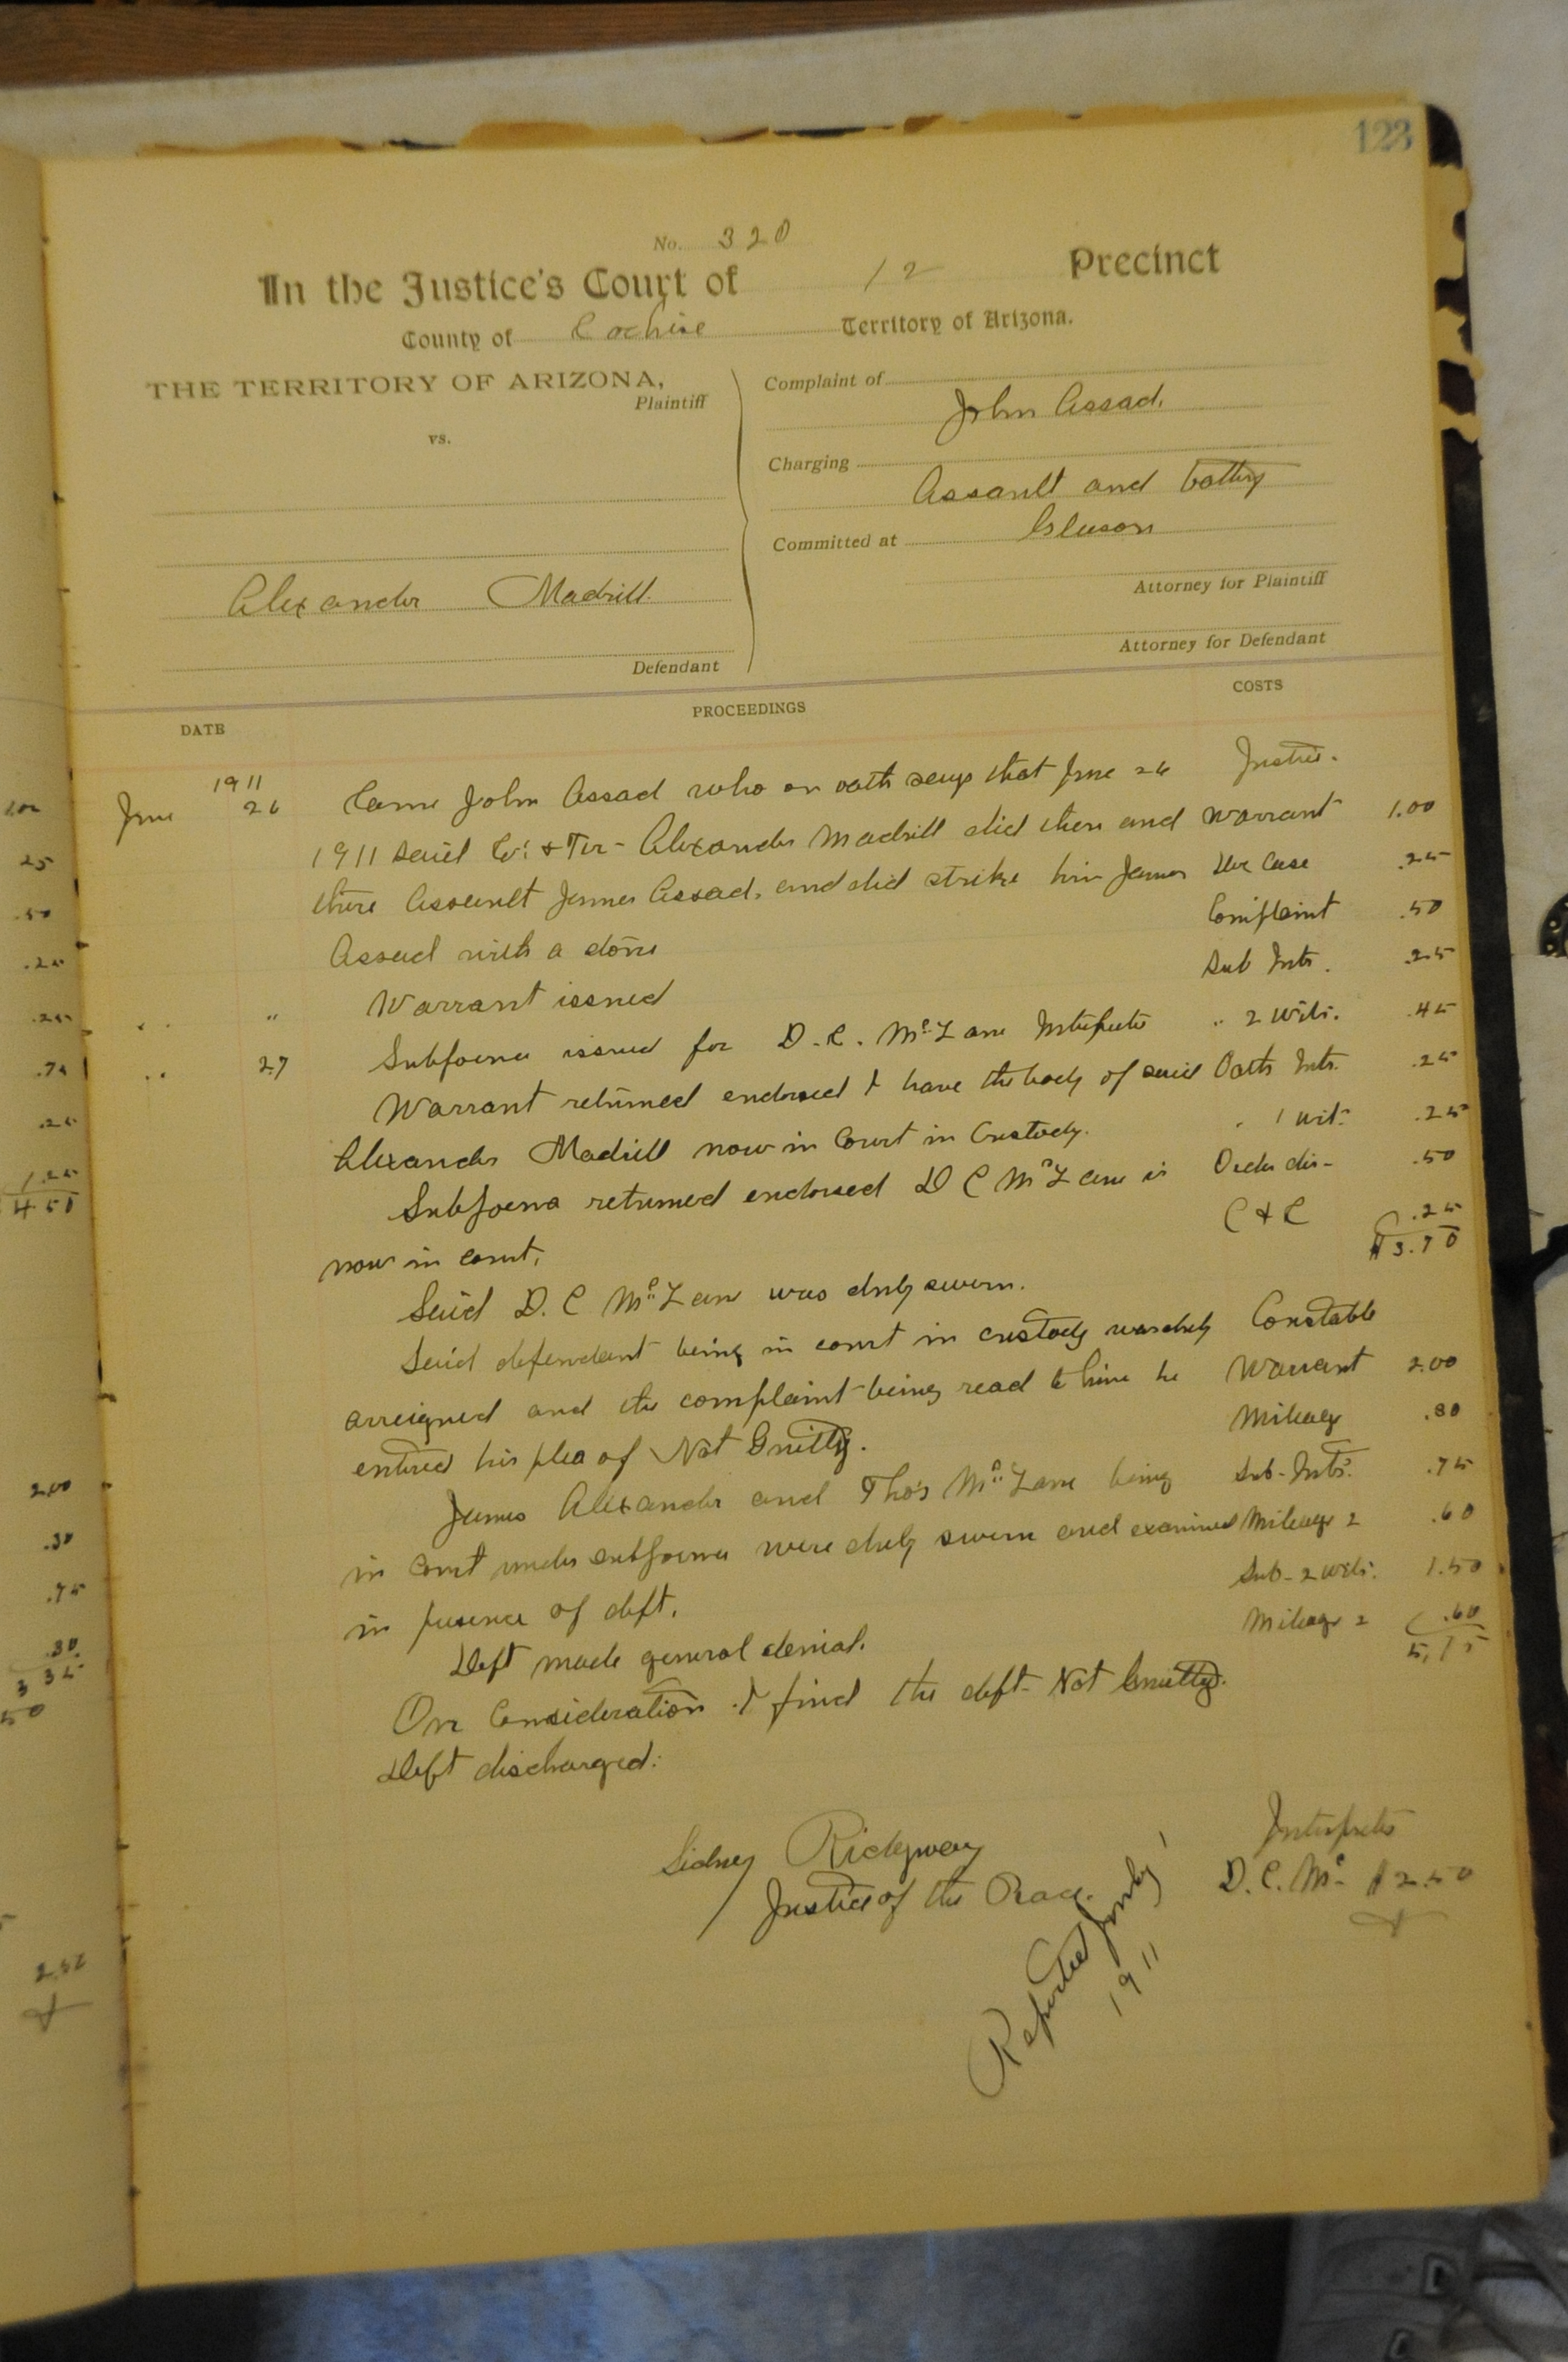 123
No. 320
In the Justice's Court of 12 Precinct
County of Cochise Territory of Arizona.
THE TERRITORY OF ARIZONA,
Plaintiff
vs.
Alexander Madrill.
Defendant
Complaint of
John Assad.
Charging
Assault and battery
Committed at Gleeson
Attorney for Plaintiff
Attorney for Defendant
DATE PROCEEDINGS COSTS
1911
June 26 Came John Assad who on oath says that June 26 Justice.
1911 said Co. & Ter- Alexander Madrill did then and Warrant 1.00
there Assault James Assad, and did strike him James Doc Case .25
Assad with a stone Complaint .50
" Warrant issued Sub Intr. .25
.. 27 Subpoena issued for D.C. McLane Interpreter .. 2 Wits. .45
Warrant returned endorsed I have the body of said Oath Intr. .25
Alexander Madrill now in Court in Custody. . 1 wit. .25
Subpoena returned endorsed D C McLane is Order dis- .50
now in court. C & C .25
$3.70
Said D. C McLane was duly sworn.
Said defendant being in court in custody was duly Constable
arreigned and the complaint being read to him he Warrant 2.00
entered his plea of Not Guilty. Mileage .30
James Alexander and Thos McLane being Sub-Intr. .75
in Court under subpoena were duly sworn and examined Mileage 2 .60
in presence of deft. Sub- 2 wits. 1.50
Deft made general denial. Mileage 2 .60
5.75
On Consideration I find the deft- Not Guilty.
Deft discharged:
Sidney Ridgway
Justice of the Peace.
Reported July 1
1911
Interpreter
D.C. Mc- $2.50
.25
.50
.25
.25
.75
.25
1.25
4 50
2.00
.30
.75
.30
3 35
50
2.50